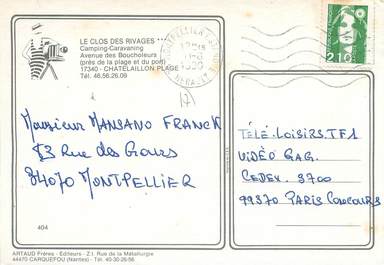 LE CLOS DES RIVAGES ***
Camping-Caravaning
Avenue des Boucholeurs
(près de la plage et du port)
17340 - CHATELAILLON PLAGE
Tél. 46.56.26.09
Monsieur MANSANO FRANCK
83 Rue des Graurs
34070 MONTPELLIER
404
ARTAUD Frères - Editeurs - Z.I. Rue de la Métallurgie
44470 CARQUEFOU (Nantes) - Tél. 40-30-26-56
MONTPELLIER
HERAULT
2,10
TÉLÉ.LOISIRS.TF1
VIDÉO GAG.
CEDEX. 3700
99370 PARIS CONCOURS